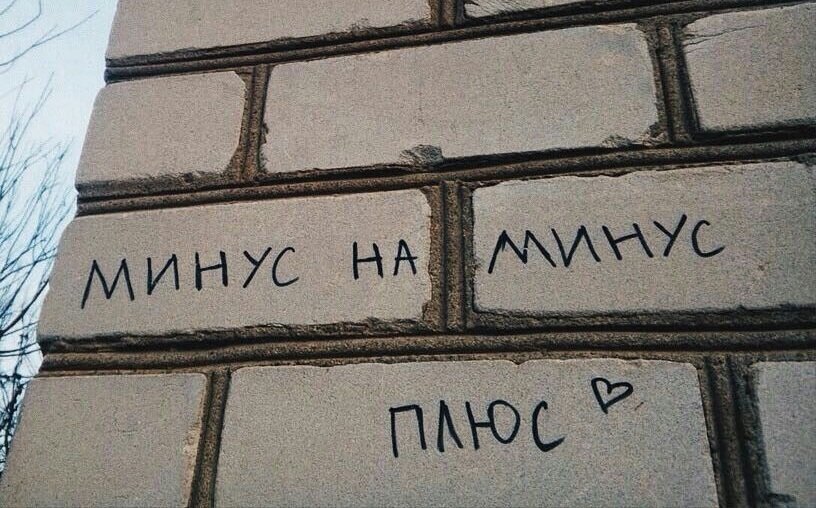 МИНУС НА МИНУС
ПЛЮС ♡